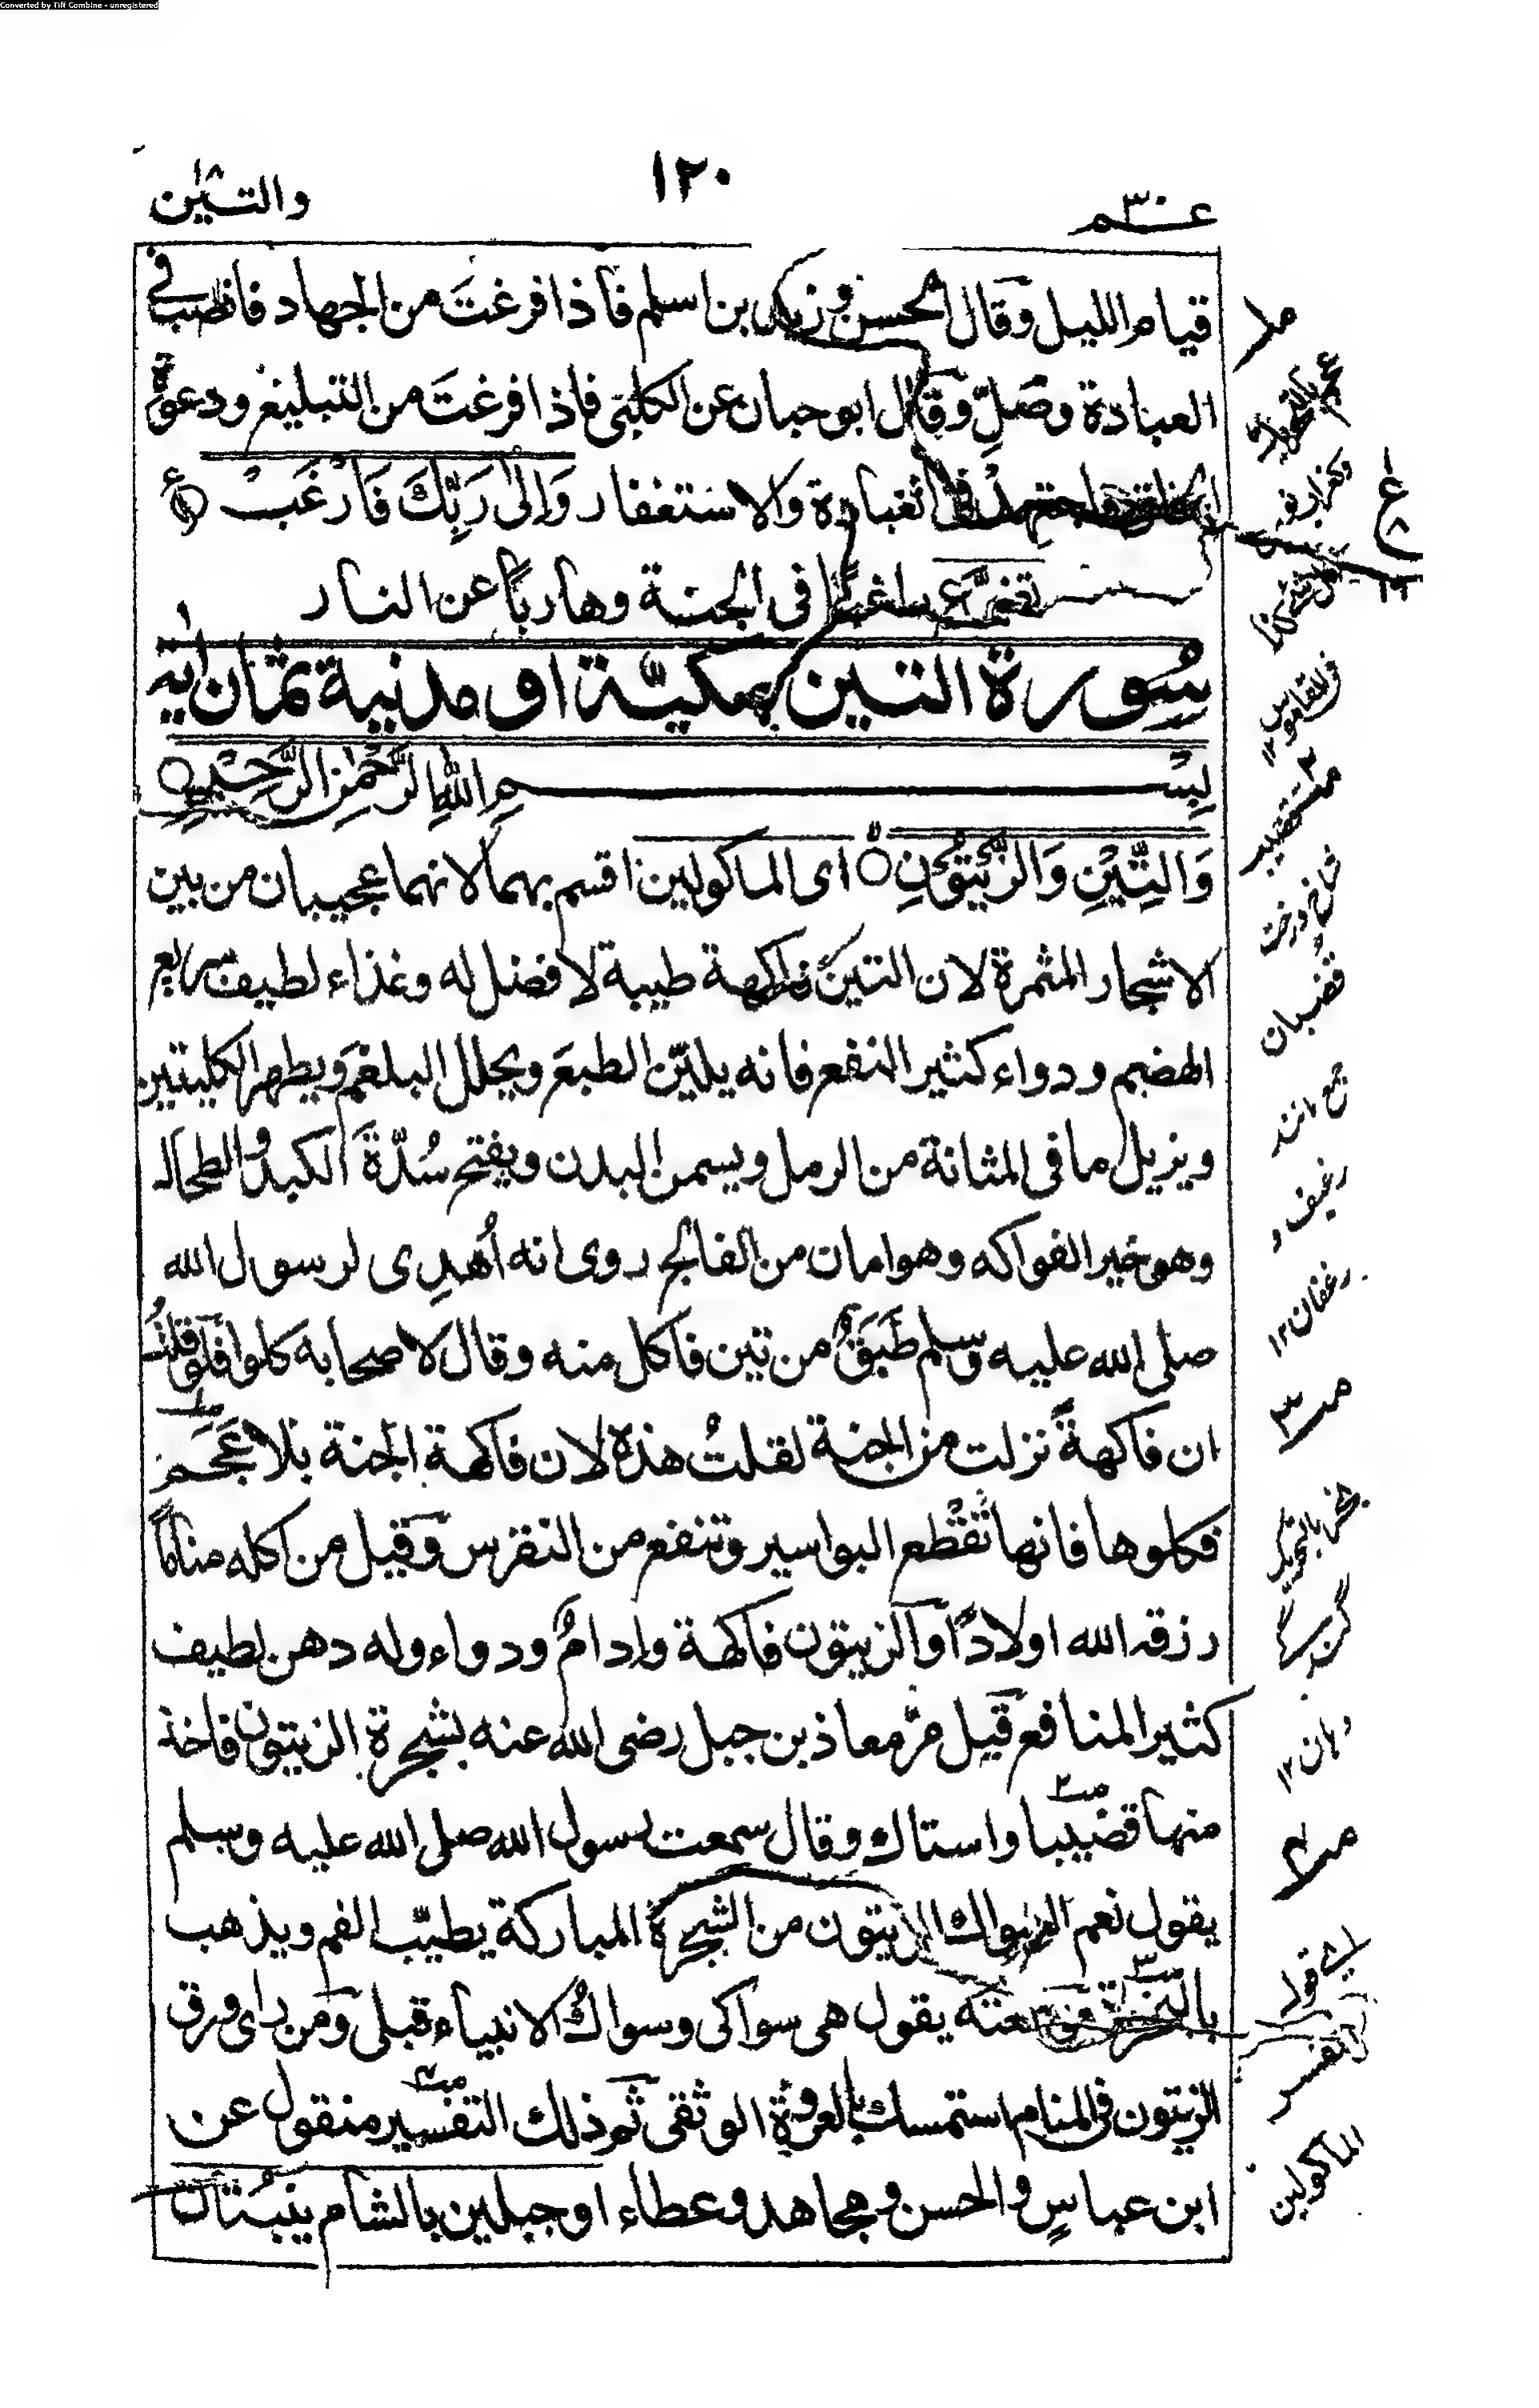 Converted by Tiff Combine - unregistered
والتين
١٢٠
عم ٣٠
قيام الليل وقال الحسن وزيد بن اسلم فاذا فرغتَ من الجهاد فانصب في
العبادة وصَلِّ وقال ابو حبان عن الكلبى فاذا فرغتَ من التبليغ ودعوة
الخلق فاجتهدْ فى العبادة والاستغفار وَاِلىٰ رَبِّكَ فَارْغَبْ
تضرَّع راغبًا فى الجنة وهاربًا عن النار
سُورة التين مكيّة او مدنية ثمان اٰية
بِسْمِ اللهِ الرَّحْمٰنِ الرَّحِيْمِ
وَالتِّيْنِ وَالزَّيْتُوْنِ اى الماكولين اقسم بهما لانهما عجيبان من بين
الاشجار المثمرة لان التين فاكهة طيبة لا فضل له وغذاء لطيف سريع
الهضم ودواء كثير النفع فانه يليّن الطبعَ ويحلل البلغمَ ويطهر الكليتين
ويزيل ما فى المثانة من الرمل ويسمن البدن ويفتح سُدّةَ الكبد والطحال
وهو خير الفواكه وهو امان من الفالج روى انه اُهدِى لرسول الله
صلى الله عليه وسلم طَبَقٌ من تين فاكل منه وقال لاصحابه كلوا فلو قلتُ
ان فاكهةً نزلت من الجنة لقلتُ هذه لان فاكهة الجنة بلا عَجَم
فكلوها فانها تقْطع البواسير وتنفع من النقرس وقيل من اكله منامًا
رزقه الله اولادًا والزيتون فاكهة وادامٌ ودواء وله دهن لطيف
كثير المنافع قيل مرَّ معاذ بن جبل رضى الله عنه بشجرة الزيتون فاخذ
منها قضيبا واستاك وقال سمعت رسول الله صلى الله عليه وسلم
يقول نعم السواك الزيتون من الشجرة المباركة يطيّب الفم ويذهب
بالبخرة وسمعته يقول هى سواكى وسواكُ الانبياء قبلى ومن راى ورق
الزيتون فى المنام استمسك بالعروة الوثقى ثم ذلك التفسير منقول عن
ابن عباسٍ والحسن ومجاهد وعطاء او جبلين بالشام ينبتان
ع
١٩
قضبان
جمع مانند
رغيف و
رغفان ١٢
دہان ١٢
اے قولہ
التفسير
الماكولين